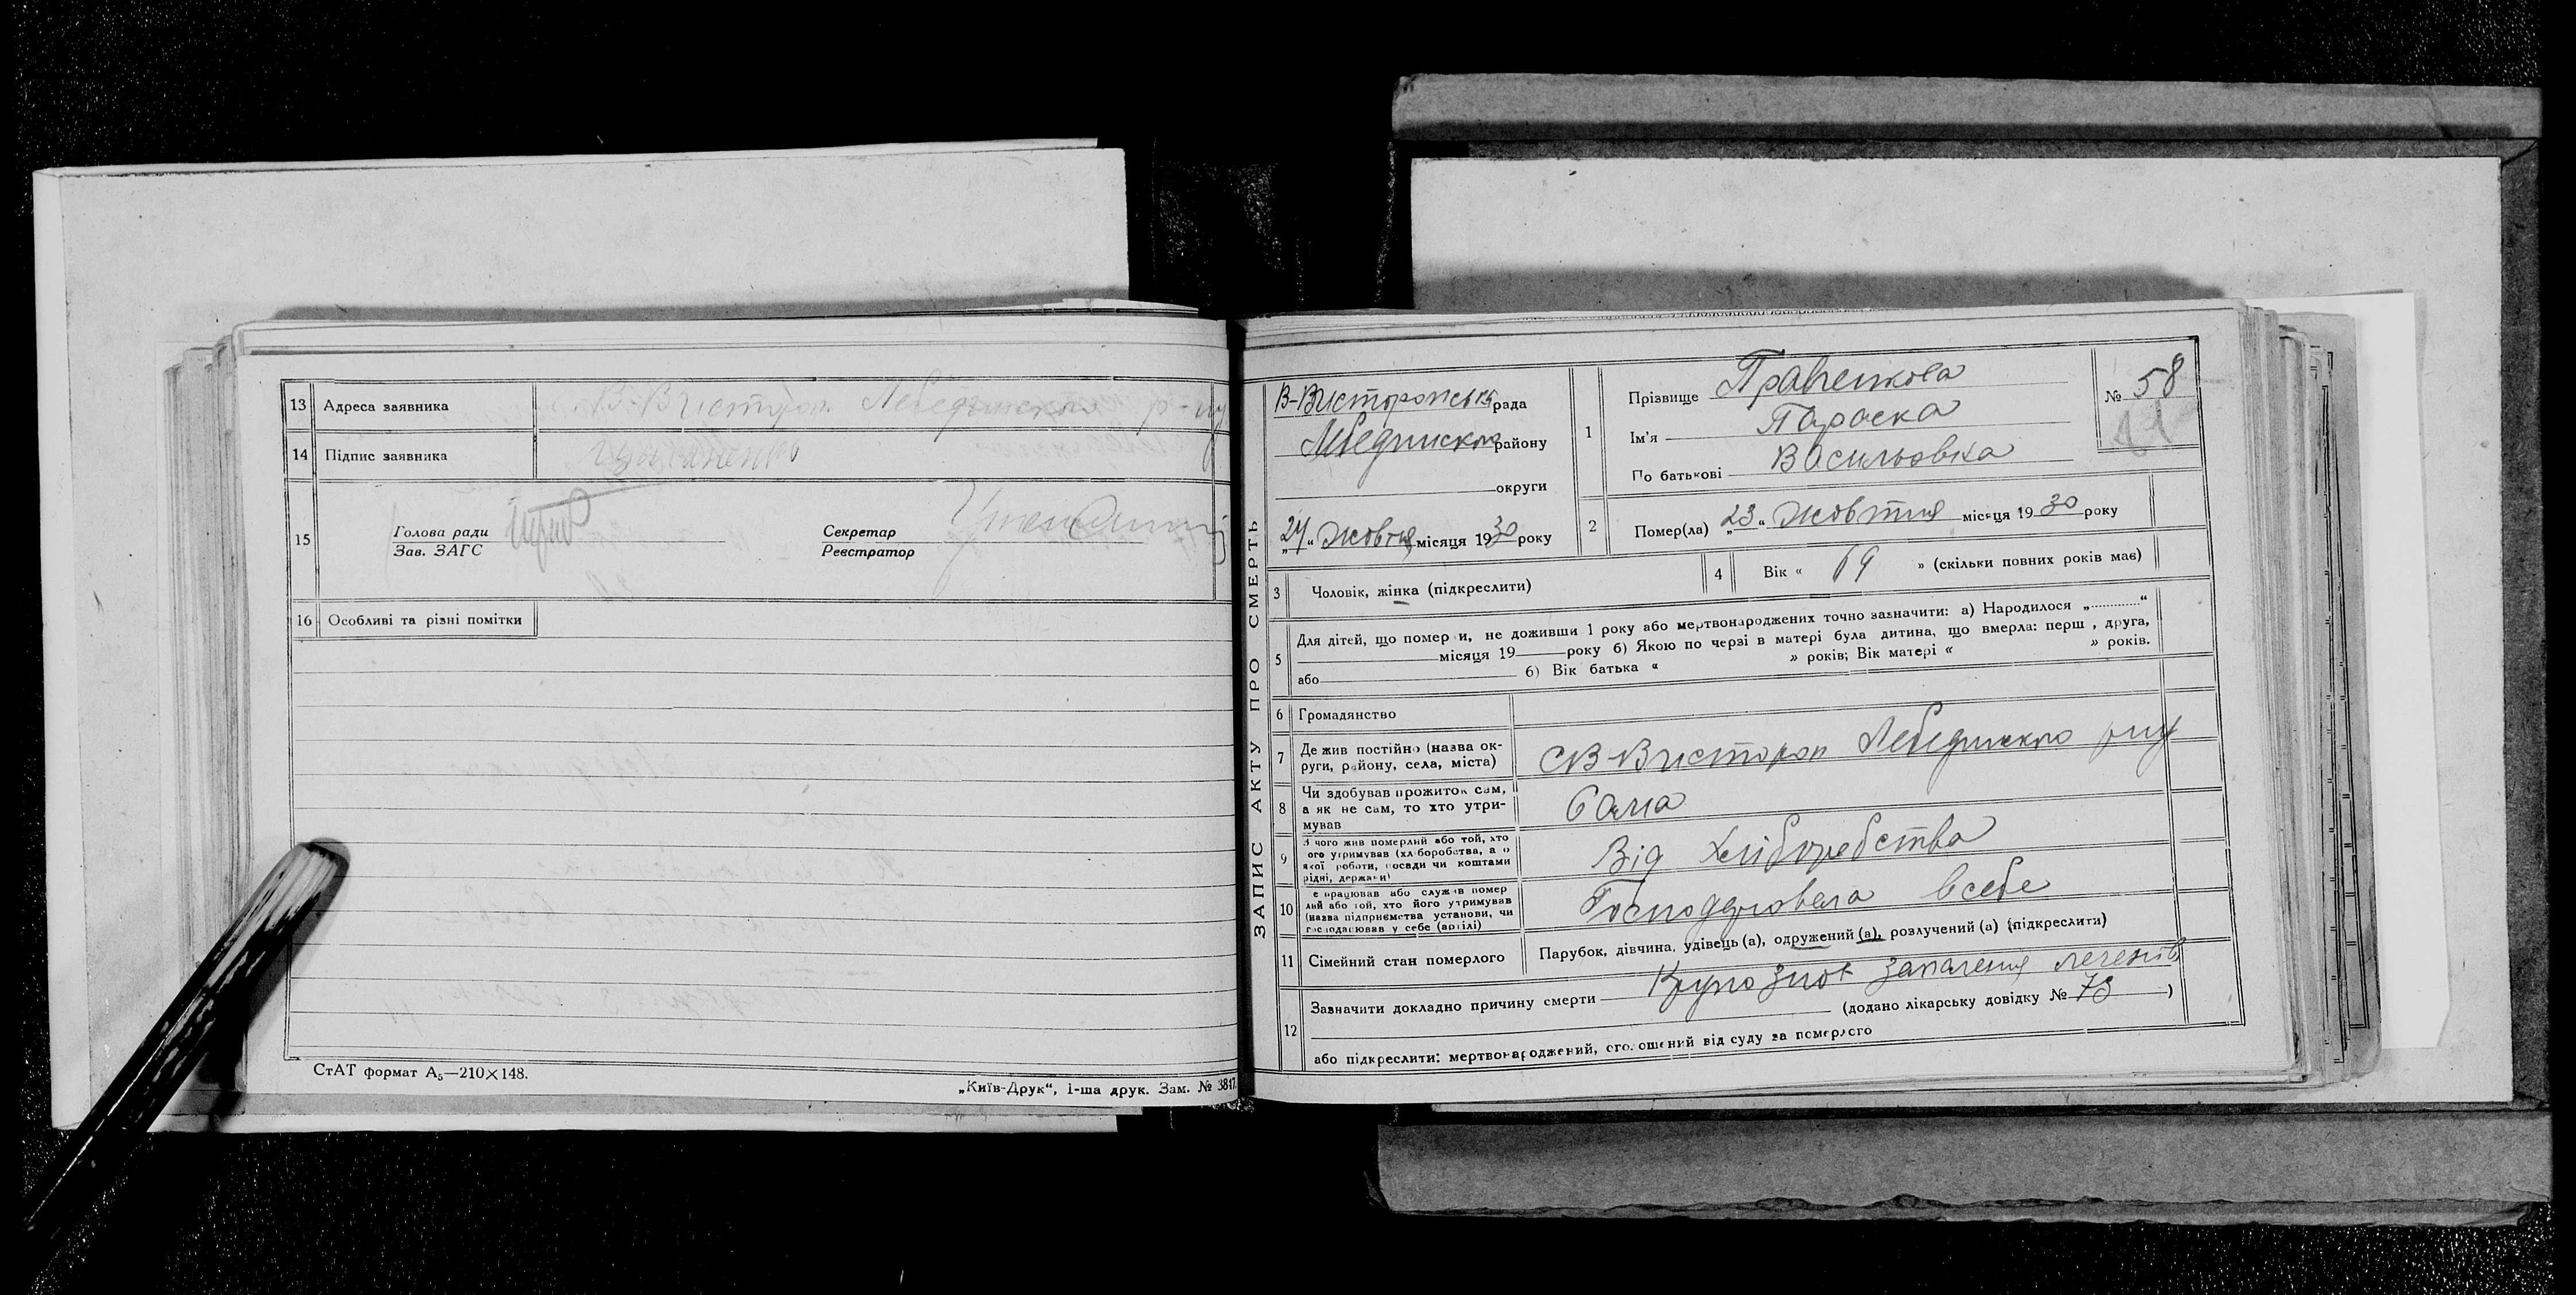 13 Адреса заявника с. В-Вистороп Лебединського р-ну
14 Підпис заявника
15
Голова ради
Зав. ЗАГС
Секретар
Реєстратор
16 Особливі та різні помітки
СтАТ формат А₅—210×148.
„Київ-Друк“, 1-ша друк. Зам. № 3817
ЗАПИС АКТУ ПРО СМЕРТЬ
В-Висторопська рада
Лебединського району
округи
„24“ Жовтня місяця 1930 року
1 Прізвище Правченкова
Ім'я Параска
По батькові Васильовна
№ 58
2 Помер(ла) „23“ Жовтня місяця 1930 року
3 Чоловік, жінка (підкреслити)
4 Вік « 69 » (скільки повних років має)
5 Для дітей, що померли, не доживши 1 року або мертвонароджених точно зазначити: а) Народилося „............“
місяця 19 року б) Якою по черзі в матері була дитина, що вмерла: перш , друга,
або б) Вік батька « » років; Вік матері « » років.
6 Громадянство
7 Де жив постійно (назва ок-
руги, району, села, міста) С В-Вистороп Лебединского рну
8 Чи здобував прожиток сам,
а як не сам, то хто утри-
мував Сама
9 З чого жив померлий або той, хто
ого утримував (хліборобства, а о
якої роботи, посади чи коштами
рідні, держави) Від хліборобства
10 е працював або служив помер
лий або той, хто його утримував
(назва підприємства установи, чи
господарював у себе (артілі) Господарювала всебе
11 Сімейний стан померлого Парубок, дівчина, удівець (а), одружений (а), розлучений (а) (підкреслити)
12 Зазначити докладно причину смерти Крупозное запаления легенів
(додано лікарську довідку № 73 )
або підкреслити: мертвонароджений, оголошений від суду за померлого